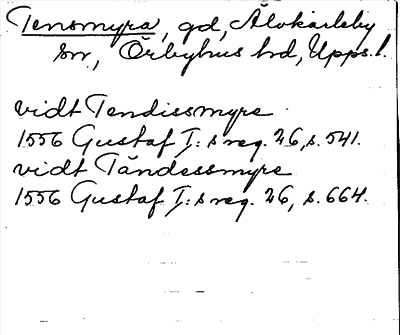 Tensmyra, gd, Älvkarleby
sn, Örbyhus hd, Upps.l.
vidt Tendissmyre
1556 Gustaf I:s reg. 26, s. 541.
vidt Tändessmyre
1556 Gustaf I:s reg. 26, s. 664.